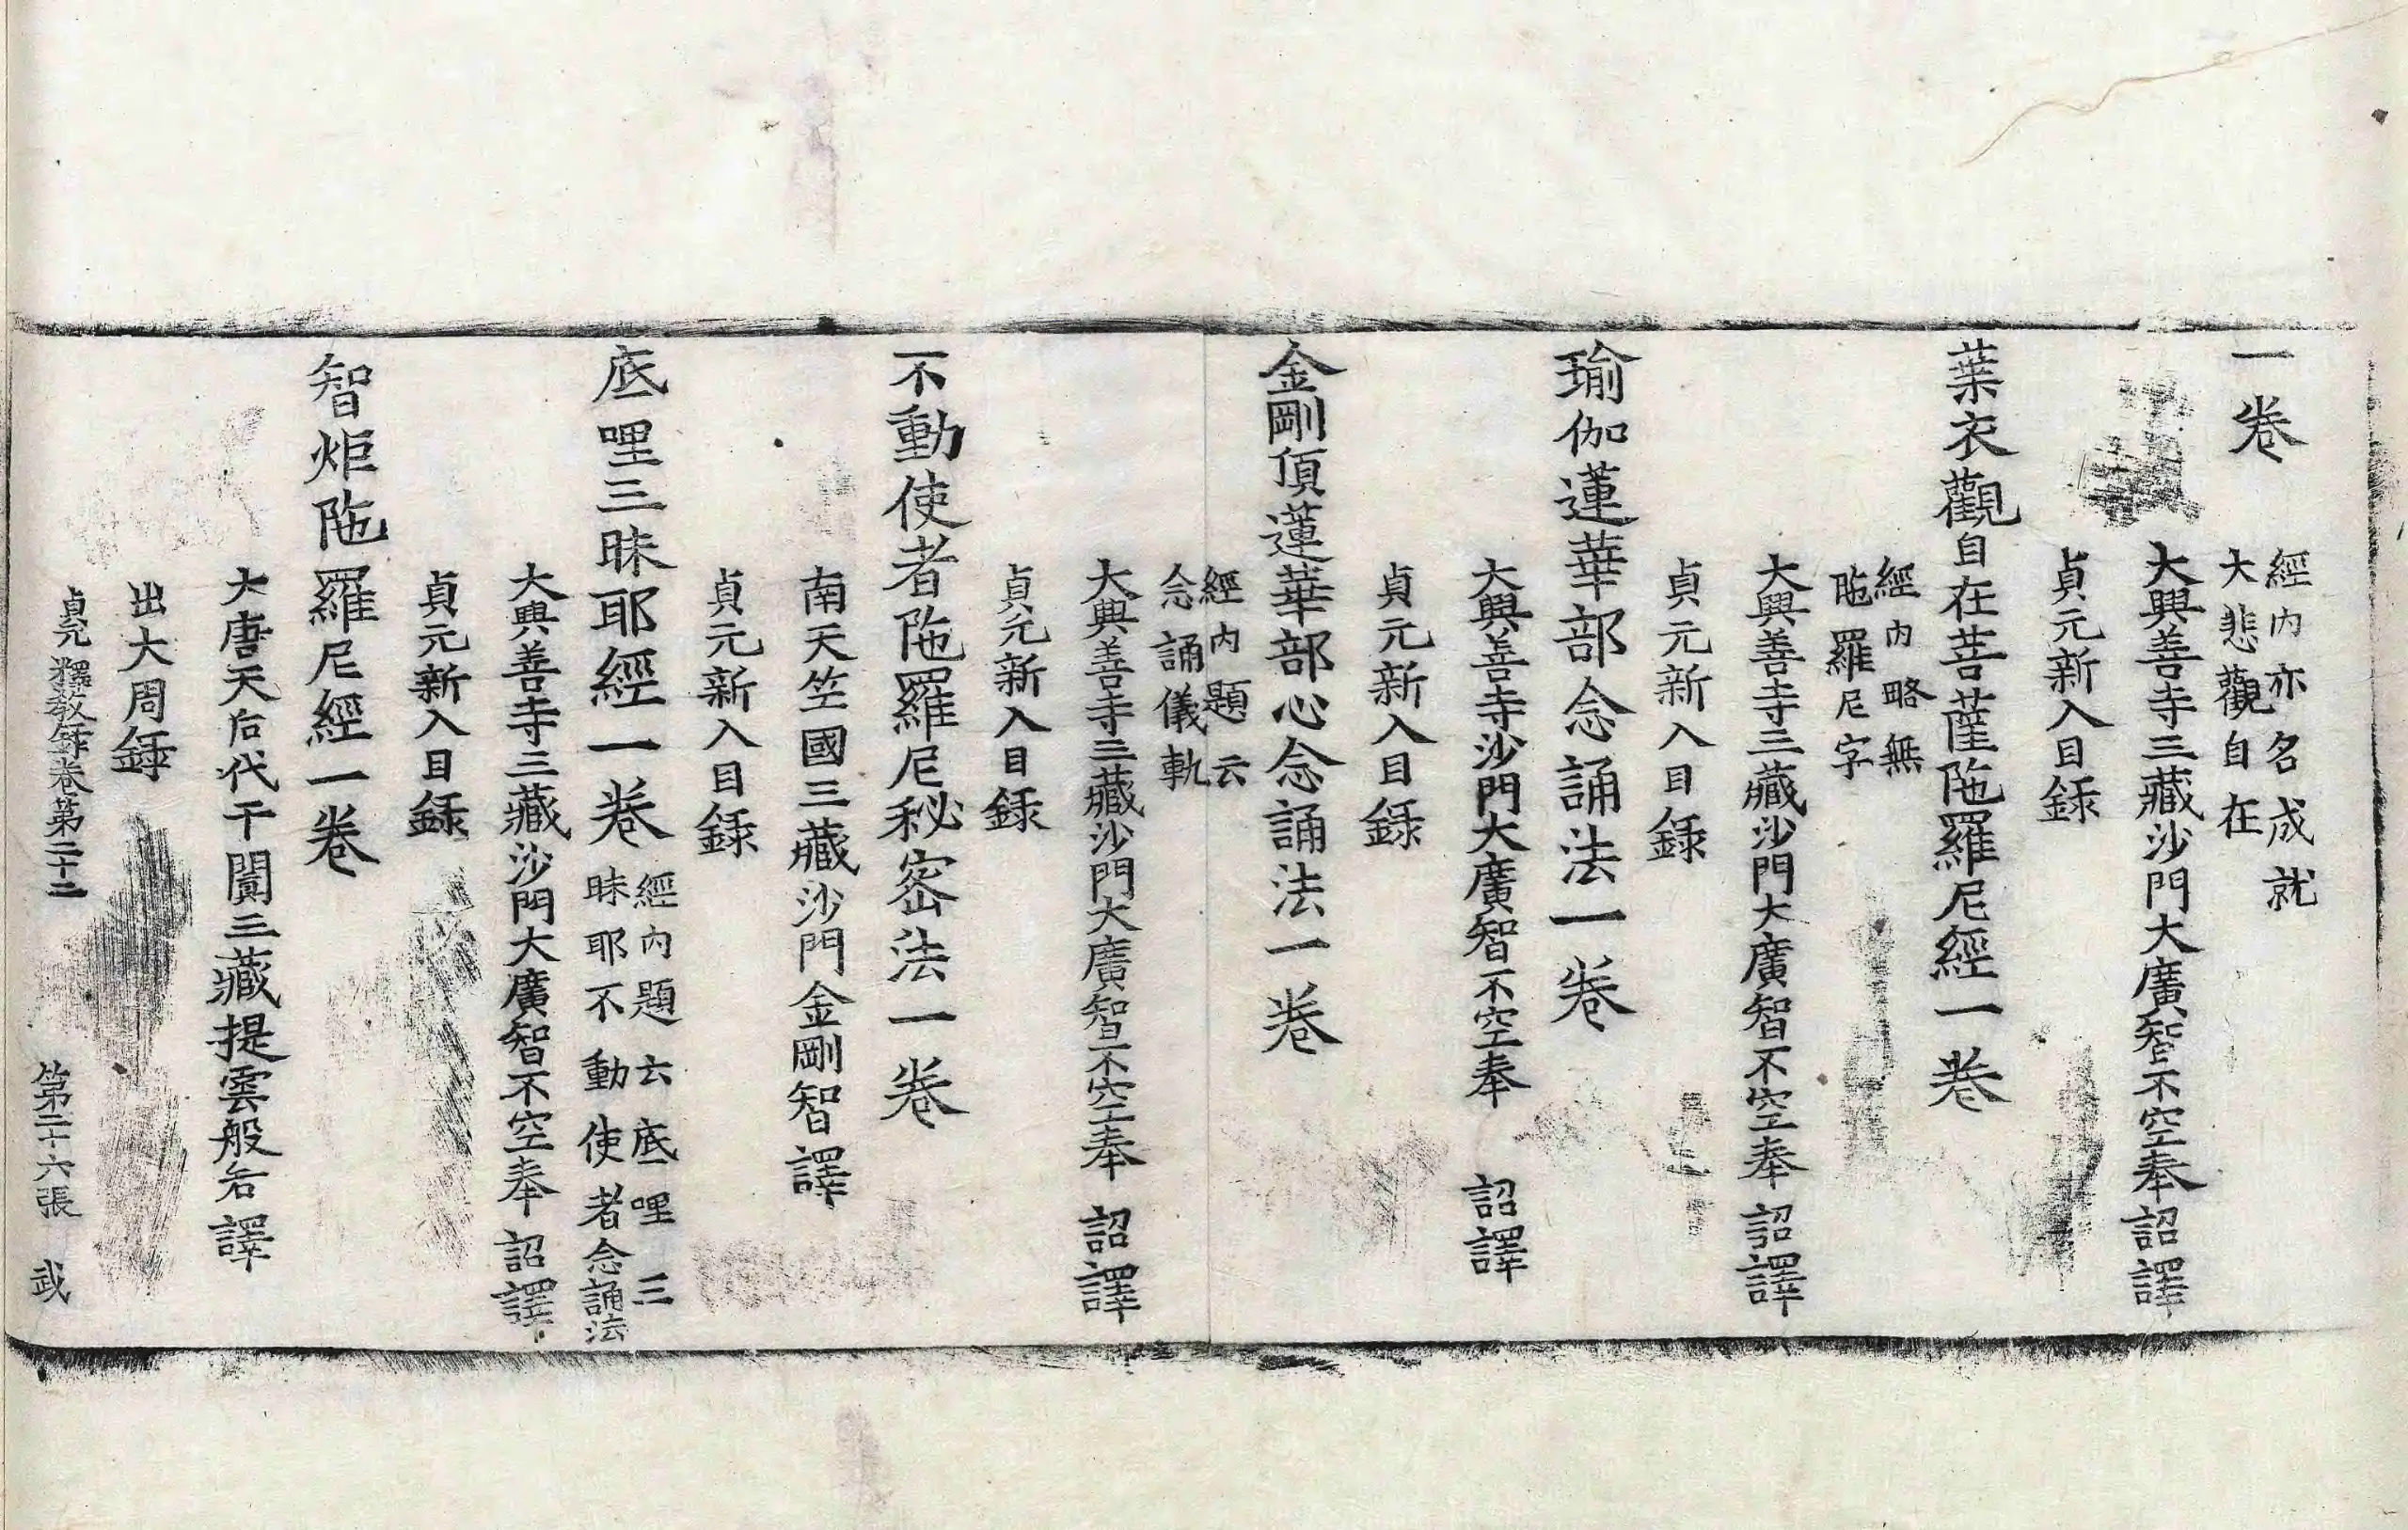 一卷
經內亦名成就
大悲觀自在
大興善寺三藏沙門大廣智不空奉詔譯
貞元新入目録
葉衣觀自在菩薩陁羅尼經一卷
經內略無
陁羅尼字
大興善寺三藏沙門大廣智不空奉詔譯
貞元新入目録
瑜伽蓮華部念誦法一卷
大興善寺沙門大廣智不空奉 詔譯
貞元新入目録
金剛頂蓮華部心念誦法一卷
經內題云
念誦儀軌
大興善寺三藏沙門大廣智不空奉 詔譯
貞元新入目録
不動使者陁羅尼秘密法一卷
南天竺國三藏沙門金剛智譯
貞元新入目録
底哩三昧耶經一卷
經內題云底哩三
昧耶不動使者念誦法
大興善寺三藏沙門大廣智不空奉 詔譯
貞元新入目録
智炬陁羅尼經一卷
大唐天后代于闐三藏提雲般若譯
出大周録
貞元釋教録卷第二十二 第二十六張 武